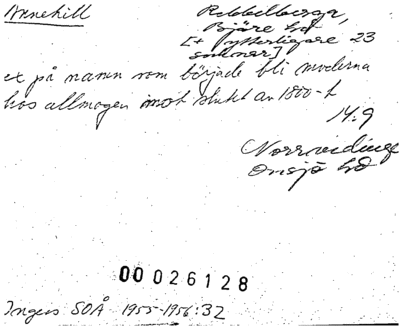 Annehill
Rebbelberga,
Bjäre hd
[+ ytterligare 23
socknar]
ex på namn som började bli moderna
hos allmogen mot slutet av 1800-t
14:9
Norrvidinge
Onsjö hd
00026128
Ingers SOÅ 1955-1956:32